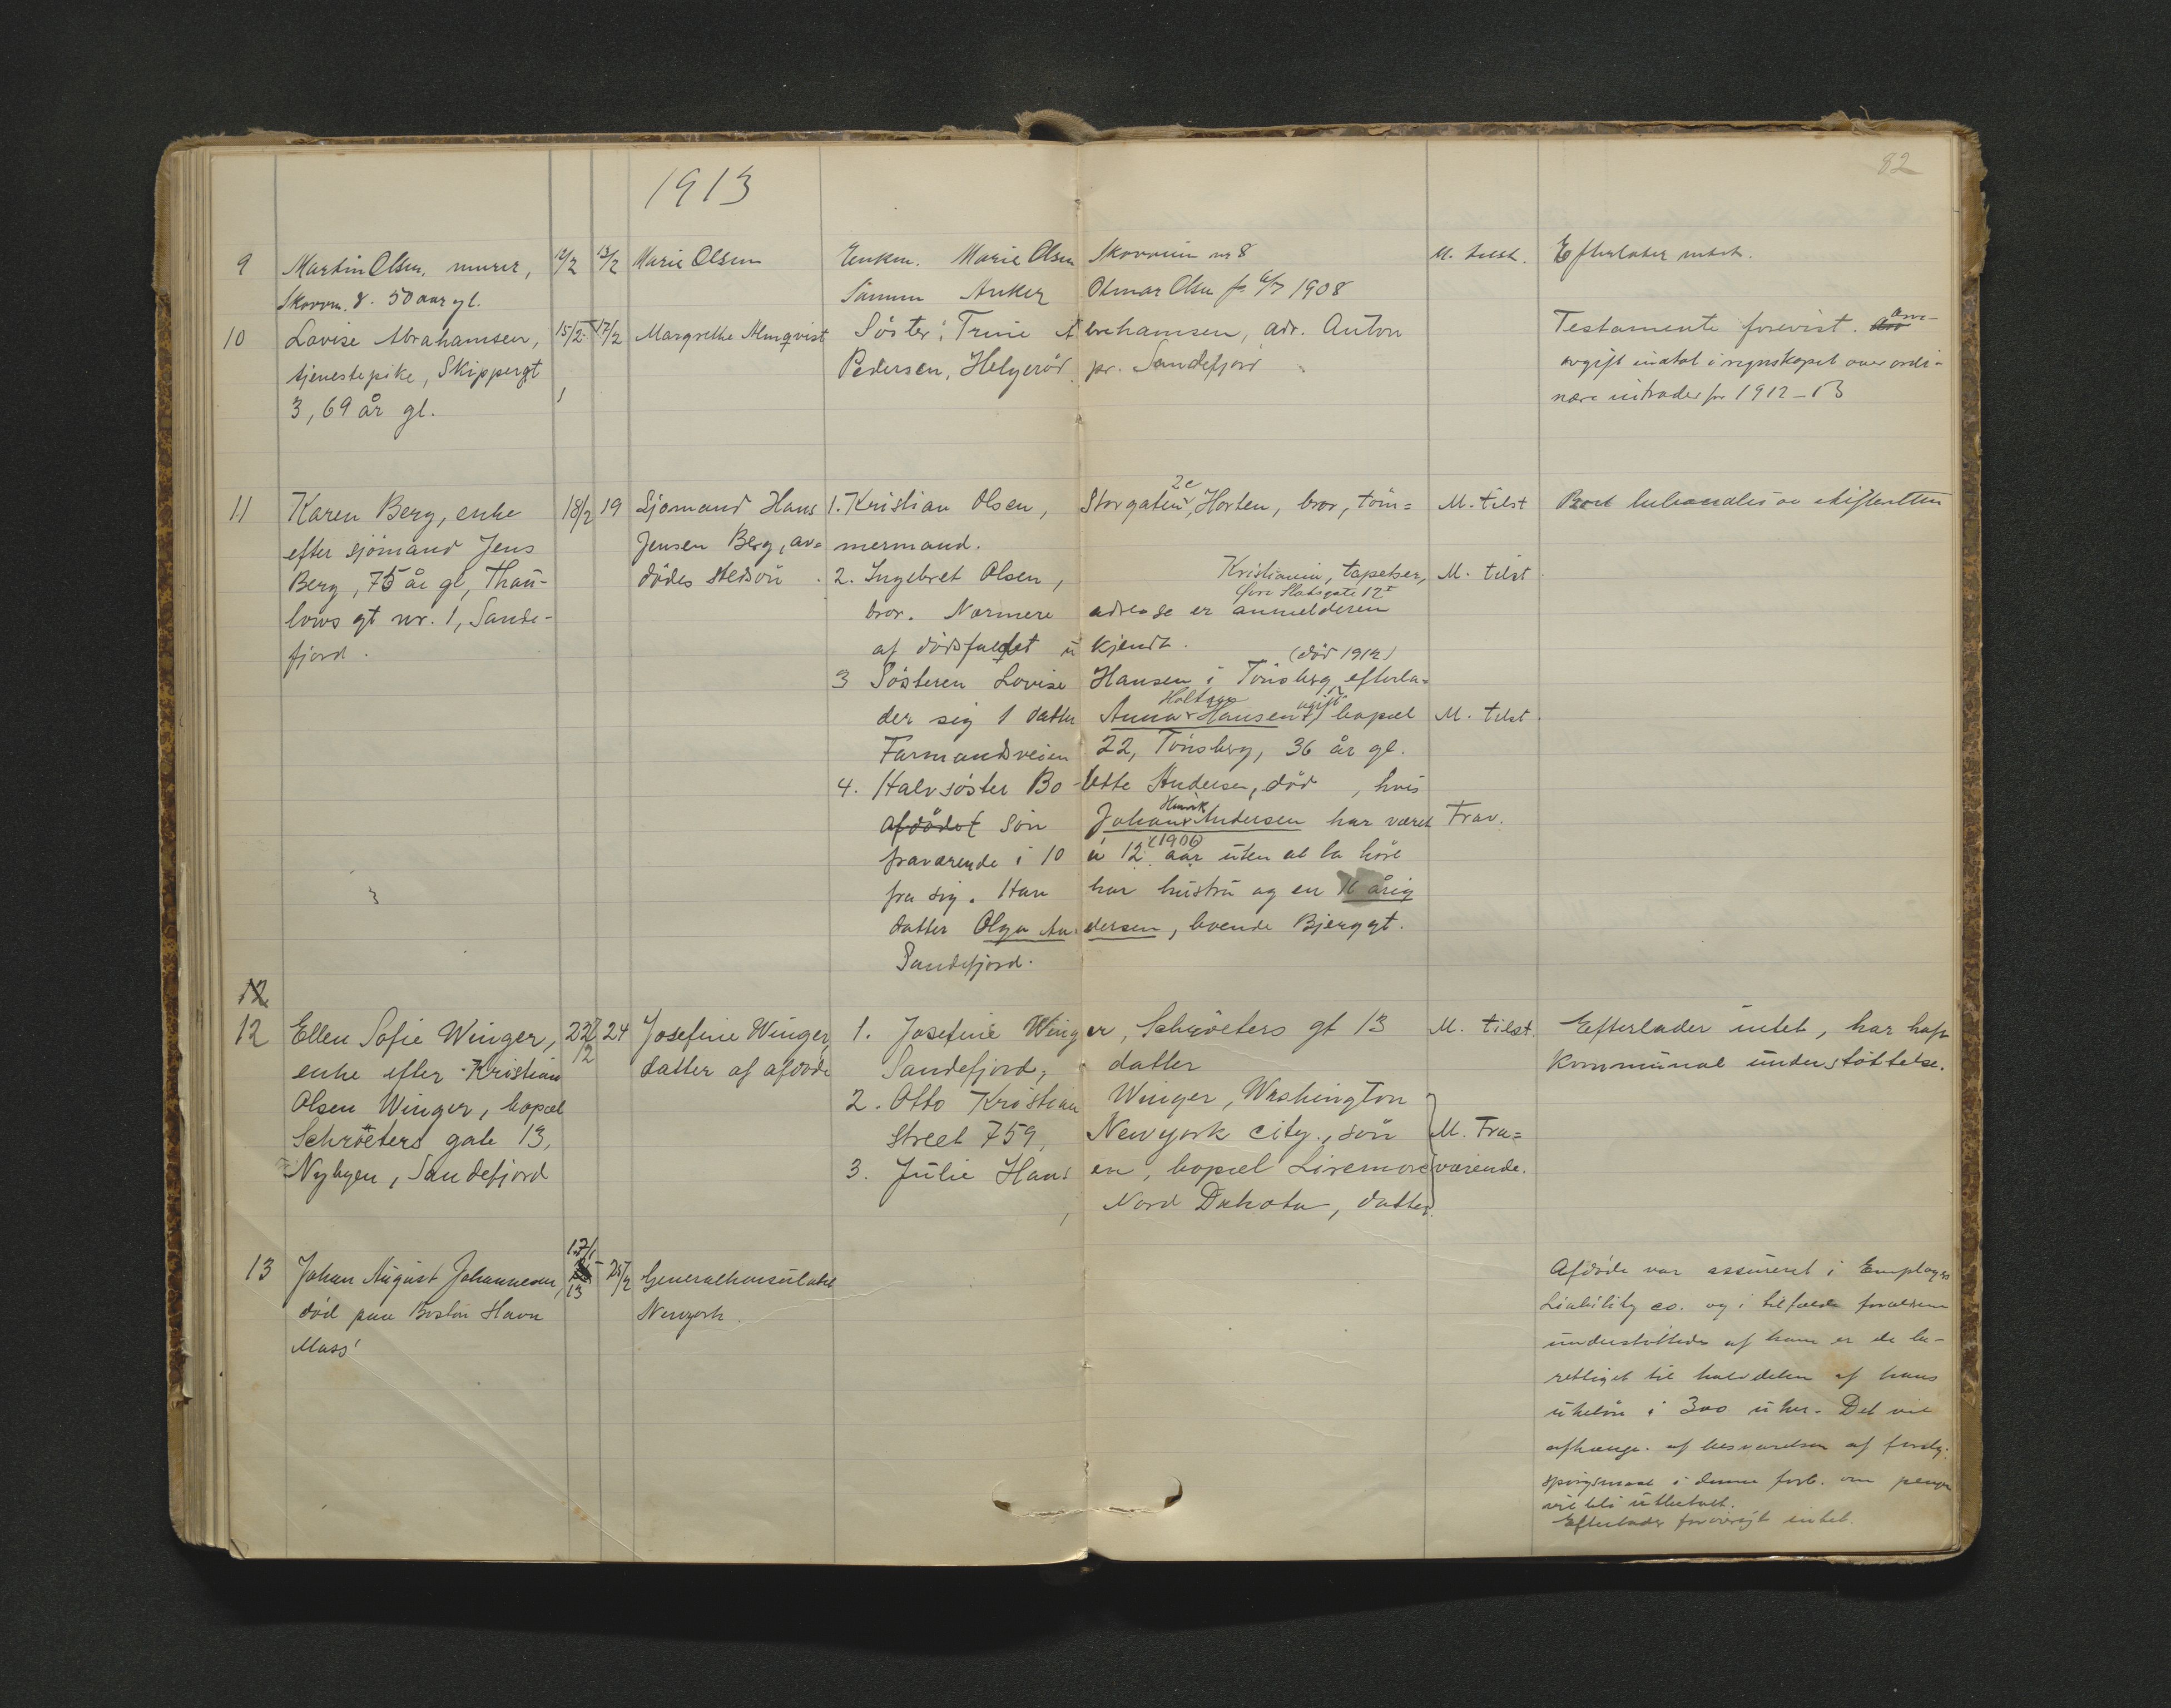 1913
82
9
Martin Olsen, murer,
Skovvn. 8. 50 aar gl.
12/2
13/2
Marie Olsen
Enken. Marie Olsen Skovveien nr 8
Sønnen Anker Otmar Olsen f. 6/7 1908
M. tilst.
Efterlater intet.
10
Lovise Abrahamsen,
tjenestepike, Skippergt
3, 69 år gl.
15/2
17/2
Margrethe Almqvist
Søster: Trine Abrahamsen, adr. Anton
Pedersen, Helgerød pr. Sandefjord
Testamente forevist. arve-
avgift indtat i regnskapet over ordi-
nære intrader for 1912-13
11
Karen Berg, enke
efter sjømand Jens
Berg, 75 år gl, Thau-
lows gt nr. 1, Sande-
fjord.
18/2
19
Sjømand Hans
Jensen Berg, av=
dødes stedsøn
1. Kristian Olsen, Storgaten 2c, Horten, bror, tøm=
mermand.
2. Ingebret Olsen, Kristiania, tapetser,
Øvre Slotsgate 12 I
bror. Nærmere adresse er anmelderen
af dødsfaldet ukjendt.
3 Søsteren Lovise Hansen i Tønsberg (død 1912) efterla=
der sig 1 datter Anna Holtran Hansen, ugift bopæl
Farmandsveien 22, Tønsberg, 36 år gl.
4. Halvsøster Bolette Andersen, død, hvis
afdødet søn Johan Henrik Andersen har været
fraværende i 10 à 12 (1900) aar uten at la høre
fra sig. Han har hustru og en 16 årig
datter Olga Andersen, boende Bjerggt.
Sandefjord.
M. tilst
M. tilst.
M. tilst.
Frav.
Boet behandles av skifteretten
12
12
Ellen Sofie Winger,
enke efter Kristian
Olsen Winger, bopæl
Schrøeters gate 13,
Nybyen, Sandefjord
22/2
24
Josefine Winger
datter af afdøde
1. Josefine Winger, Schrøeters gt 13
Sandefjord, datter
2. Otto Kristian Winger, Washington
Street 759, Newyork city., søn
3. Julie Hansen, bopæl Liremore
Nord Dakota, datter.
M. tilst.
M. Fra=
værende.
Efterlader intet, har haft
kommunal understøttelse.
13
Johan August Johannesen,
død paa Boston Havn
Mass'
17/1
13
25/2
Generalkonsulatet
Newyork.
Afdøde var assureret i Employers
Liability co. og i tilfælde forældrene
understøttedes af ham er de be-
rettiget til halvdelen af hans
ukeløn i 300 uker. Det vil
afhænge af besvarelsen af forsk.
spørgsmaal i denne forb. om penger
vil bli utbetalt.
Efterlader forøvrigt intet.